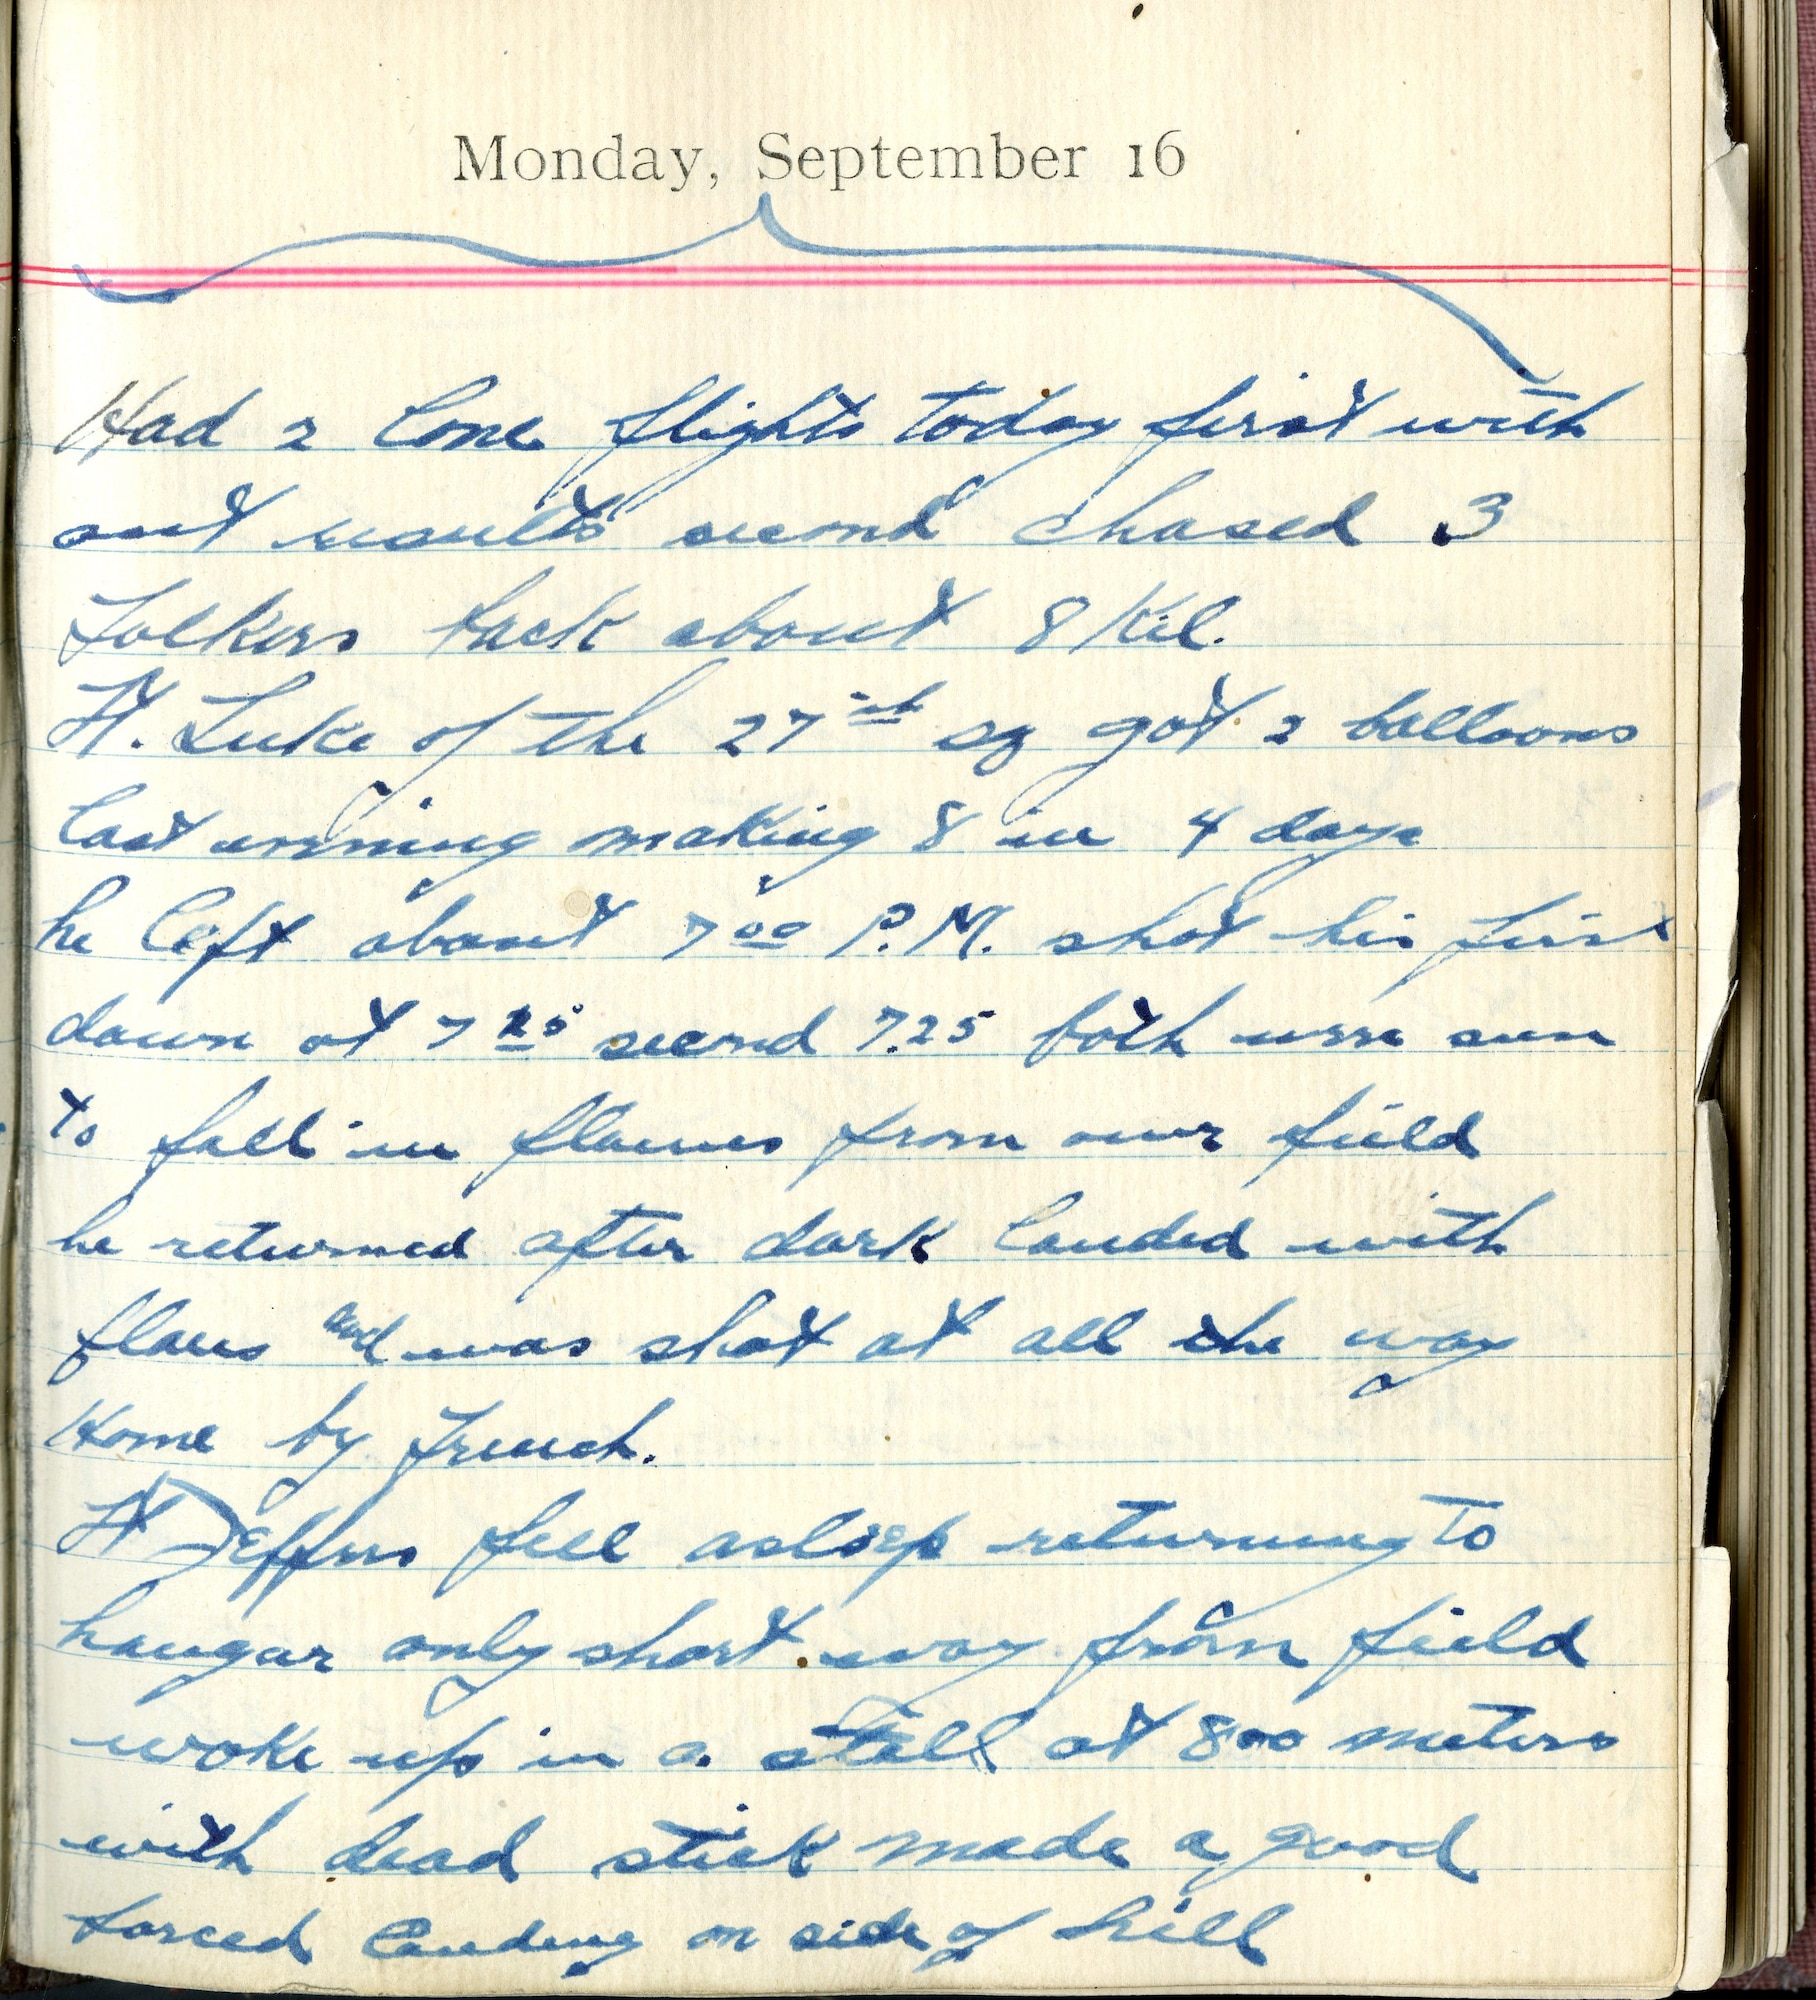 Monday, September 16
Had 2 lone flights today first with
out results second chased 3
Folkers back about 8 Kil.
Lt. Luke of the 27th sq got 2 balloons
last evening making 8 in 4 days
he left about 7 00 P.M. shot his first
down at 7 second 7.25 both were seen
to fall in flames from our field
he returned after dark landed with
flares and was shot at all the way
Home by French.
Lt Jeffers fell asleep returning to
hangar only short way from field
woke up in a stall at 800 meters
with dead stick made a good
forced landing on side of hill